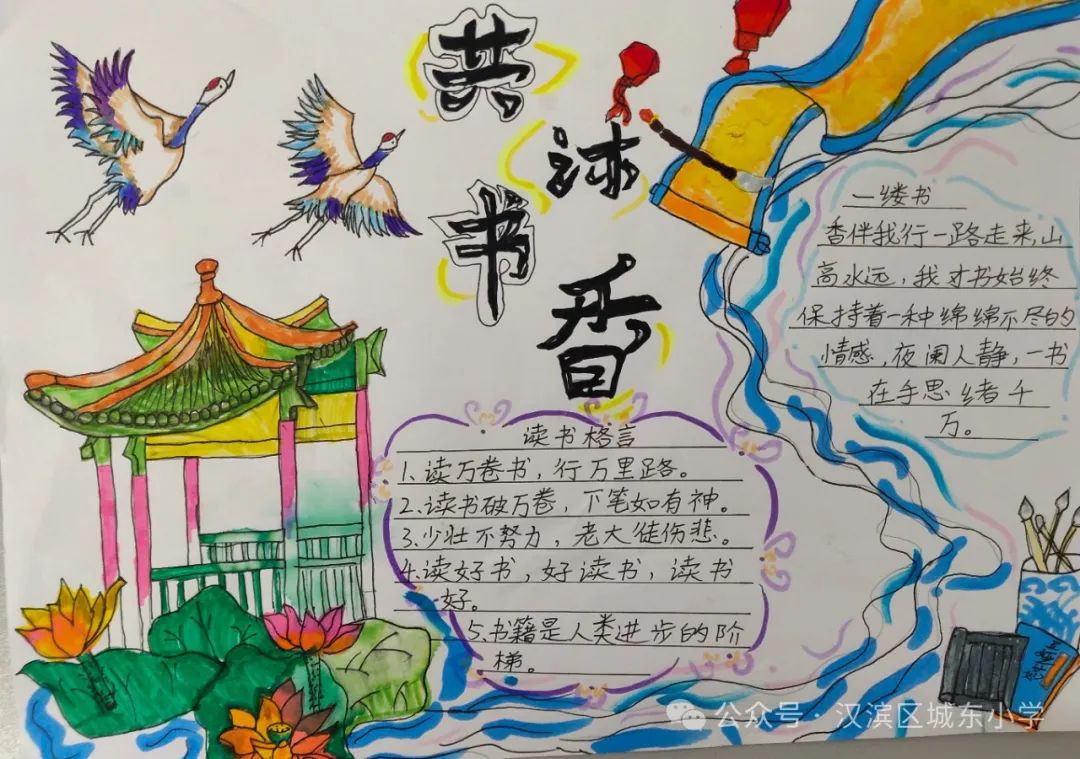 共沐
书香
一缕书
香伴我行一路走来,山
高水远，我对书始终
保持着一种绵绵不尽的
情感,夜阑人静,一书
在手思绪千
万。
读书格言
1、读万卷书，行万里路。
2、读书破万卷，下笔如有神。
3、少壮不努力，老大徒伤悲。
4、读好书，好读书，读书
好。
5、书籍是人类进步的阶
梯。
公众号·汉滨区城东小学